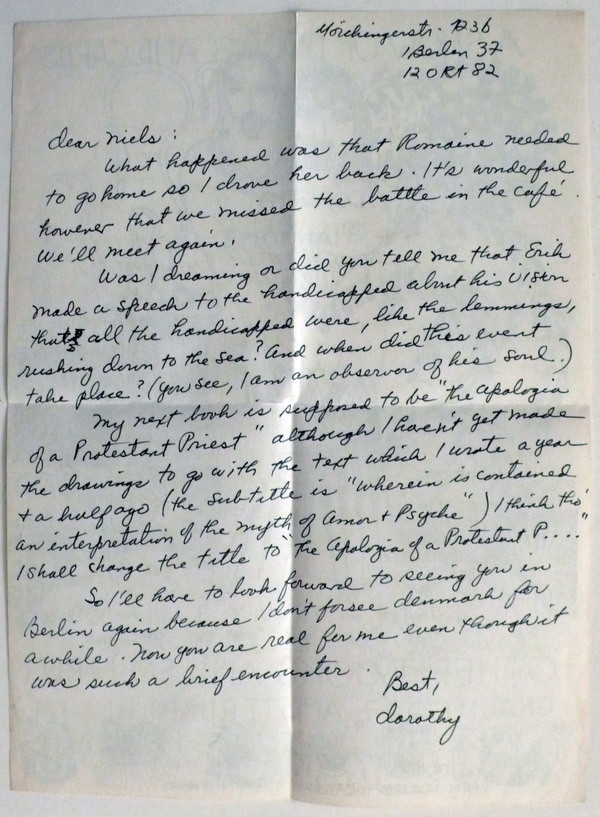 Mörchingerstr. 123b
1 Berlin 37
12 Okt 82
dear Niels:
What happened was that Romaine needed
to go home so I drove her back. It's wonderful
however that we missed the battle in the café.
We'll meet again.
Was I dreaming or did you tell me that Erik
made a speech to the handicapped about his vision
that all the handicapped were, like the lemmings,
rushing down to the sea? And when did this event
take place? (you see, I am an observor of his soul.)
My next book is supposed to be "the apologia
of a Protestant Priest" although I haven't yet made
the drawings to go with the text which I wrote a year
+ a half ago (the subtitle is "wherein is contained
an interpretation of the myth of Amor + Psyche") I think tho'
I shall change the title to "the Apologia of a Protestant P...."
So I'll have to look forward to seeing you in
Berlin again because I don't forsee denmark for
awhile. Now you are real for me even though it
was such a brief encounter.
Best,
dorothy